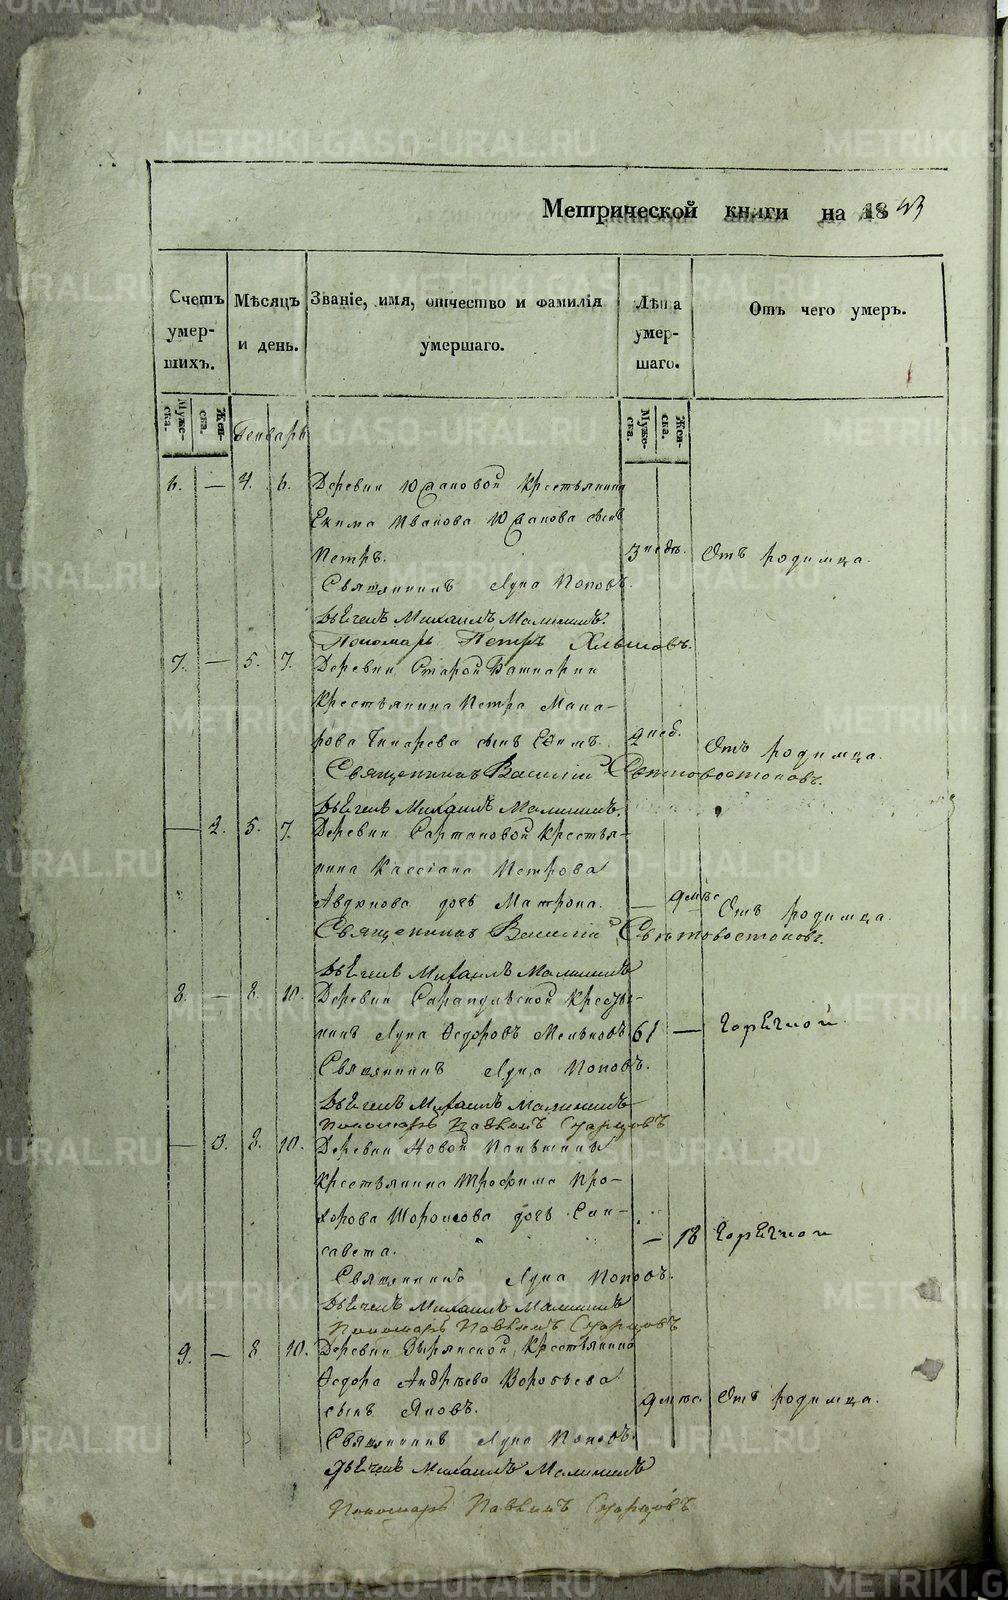 Метрической книги на 1843
Счетъ умер-шихъ.
Мѣсяцъ и день.
Званіе, имя, отчество и фамилія умершаго.
Лѣта умер-шаго.
Отъ чего умеръ.
Муже-ска.
Жен-ска.
Генварь
Муже-ска.
Жен-ска.
6. — 4. 6. Деревни Юдановой Крестьянина
Екима Иванова Юдапова сынъ
Петръ. 3 недѣ. Отъ родимца.
Священникъ Лука Поповъ.
Дьячекъ Михаилъ Малининъ.
Пономарь Петръ
7. — 5. 7. Деревни Старой
Крестьянина Петра Мака-
рова сынъ Ефимъ. 2 нед. Отъ родимца.
Священникъ Василій Свѣтовостоковъ.
Дьячекъ Михаилъ Малининъ.
— 2. 5. 7. Деревни Крестья-
нина Кассіана Петрова
Авдюкова дочь Матрона. — 9 мѣс Отъ родимца.
Священникъ Василій Свѣтовостоковъ.
Дьячекъ Михаилъ Малининъ
8. — 8. 10. Деревни Сарапульской Кресть-
нинъ Лука Ѳедоровъ Мельковъ 61 — Горячкой.
Священникъ Лука Поповъ.
Дьячекъ Михаилъ Малининъ
Пономарь Павелъ Старцовъ
— 3. 8. 10. Деревни Новой
Крестьянина Трофима Про-
хорова дочь Ели-
савета. — 18 Горячкой
Священникъ Лука Поповъ.
Дьячекъ Михаилъ Малининъ
Пономарь Павелъ Старцовъ
9. — 8 10. Деревни Зырянской Крестьянина
Ѳедора Андрѣева Воробьева
сынъ Яковъ. 9 мѣс. Отъ родимца.
Священникъ Лука Поповъ.
Дьячекъ Михаилъ Малининъ
Пономарь Павелъ Старцовъ
METRIKI.GASO-URAL.RU